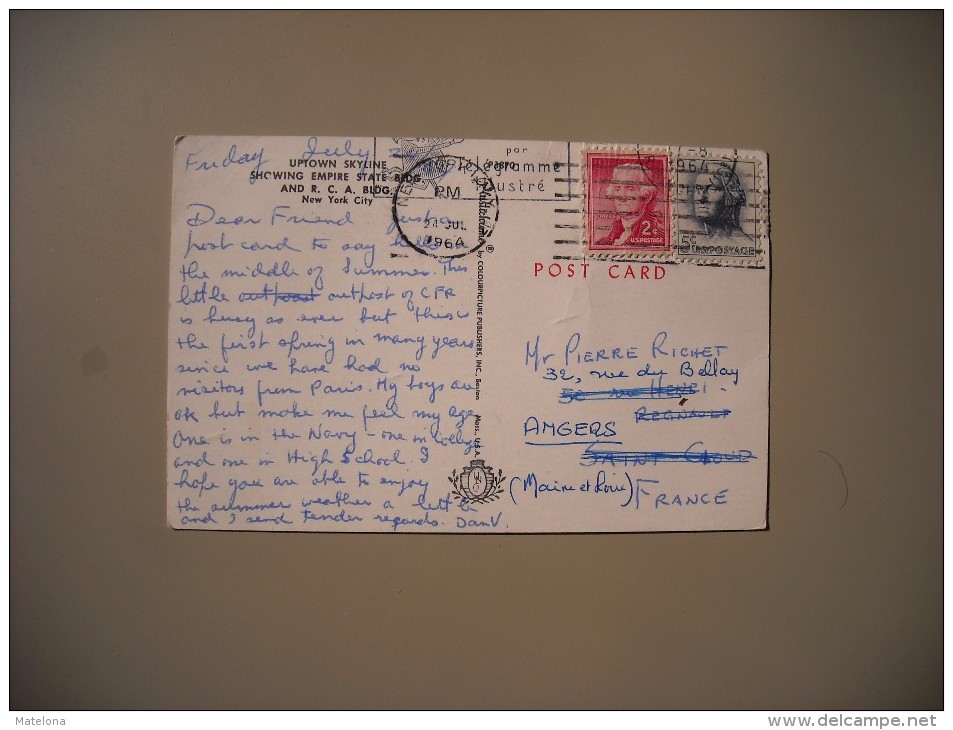 Friday July
UPTOWN SKYLINE
SHOWING EMPIRE STATE BLDG.
AND R. C. A. BLDG.
New York City
Dear Friend Just a
post card to say hello in
the middle of Summer. This
little outpost outpost of CFR
is busy as ever but this is
the first spring in many years
since we have had no
visitors from Paris. My boys are
ok but make me feel my age
One is in the Navy - one in College
and one in High School. I
hope you are able to enjoy
the summer weather a little
and I send tender regards. Dan V.
NEW YORK
PM
24 JUL
1964
P3870
Plastichrome ® by COLOURPICTURE PUBLISHERS, INC., Boston Mass. U.S.A.
par
Télégramme
illustré
1964
2¢
U.S.POSTAGE
5¢
U.S.POSTAGE
POST CARD
Mr PIERRE RICHET
32, rue du Bellay
HENRI
REGNAULT
ANGERS
SAINT CLOUD
(Maine et Loire) FRANCE
Matelona
www.delcampe.net